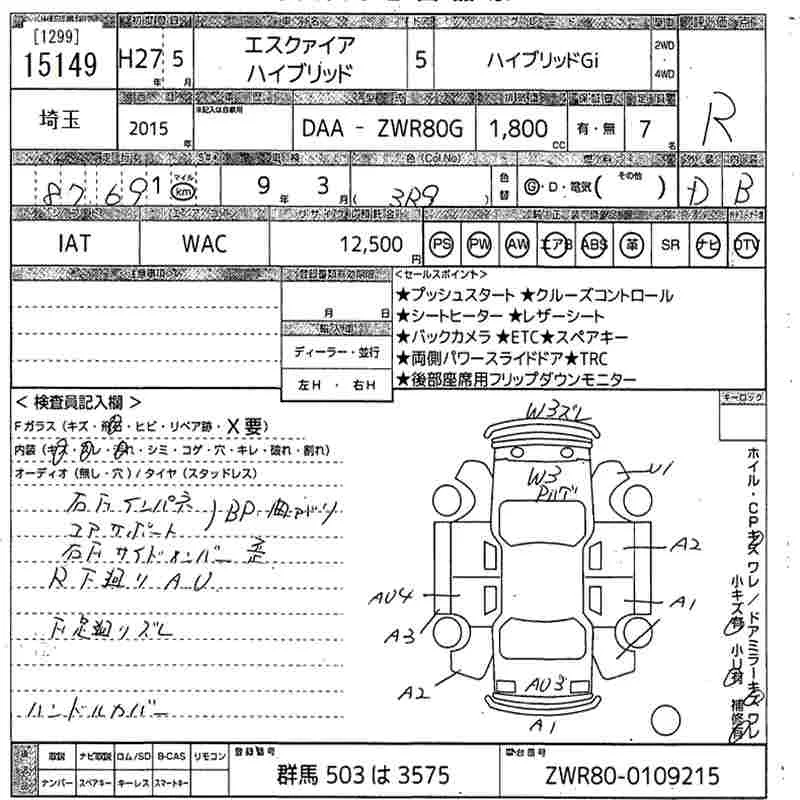 [1299]
15149
H27年 5月
エスクァイア
ハイブリッド
5
ハイブリッドGi
2WD
4WD
評価点
埼玉
2015年
※記入は自家用
型式
DAA - ZWR80G
1,800 CC
有・無
7名
R
87,691
マイル
km
9年 3月
色(Col.No)
(3R9)
色替
Ⓖ・D・電気( その他 )
D
B
IAT
WAC
12,500円
PS PW AW エアB ABS 革 SR ナビ DTV
注意事項
月 日
輸入車
ディーラー・並行
左H ・ 右H
<セールスポイント>
★プッシュスタート ★クルーズコントロール
★シートヒーター ★レザーシート
★バックカメラ ★ETC★スペアキー
★両側パワースライドドア★TRC
★後部座席用フリップダウンモニター
キーロック
< 検査員記入欄 >
Fガラス(キズ・飛・ヒビ・リペア跡・X要)
内装(キズ・・シミ・コゲ・穴・キレ・破れ・割れ)
オーディオ(無し・穴)/タイヤ(スタッドレス)
右Fインパネ
コアサポート
BP曲
右Fサイドメンバー歪
R下廻りAU
下足廻リズレ
ハンドルカバー
W3ズレ
W3
U1
A2
AU4
A1
A3
A2
AU3
A1
ホイル・CPキズ ワレ/ドアミラーキズ ワレ
小キズ有 小U有 補修有
取説 ナビ取説 ロム/SD B-CAS リモコン
ナンバー スペアキー キーレス スマートキー
登録番号
群馬 503 は 3575
車台番号
ZWR80-0109215